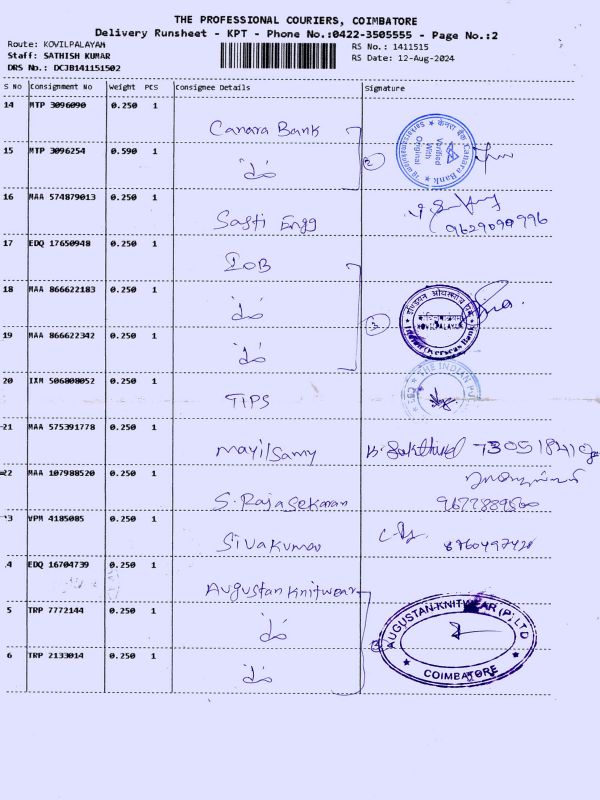 THE PROFESSIONAL COURIERS, COIMBATORE
Delivery Runsheet - KPT - Phone No.:0422-3505555 - Page No.:2
Route: KOVILPALAYAM
Staff: SATHISH KUMAR
DRS No.: DCJB141151502
RS No.: 1411515
RS Date: 12-Aug-2024
S No Consignment No Weight PCS Consignee Details Signature
14 MTP 3096090 0.250 1 Canara Bank
15 MTP 3096254 0.590 1 do
2
केनरा बैंक Canara Bank
Verified With Original
16 MAA 574879013 0.250 1 Sasti Engg
9629090996
17 EDQ 17650948 0.250 1 IOB
18 MAA 866622183 0.250 1 do
19 MAA 866622342 0.250 1 do
3
इण्डियन ओवरसीज़ बैंक
KOVILPALAYAM
Indian Overseas Bank
20 IXM 506808052 0.250 1 TIPS
THE INDIAN PU
21 MAA 575391778 0.250 1 Mayilsamy
22 MAA 107988520 0.250 1 S. Rajasekaran
3 VPM 4185085 0.250 1 Sivakumar
8760497420
4 EDQ 16704739 0.250 1 Augustan Knitwear
5 TRP 7772144 0.250 1 do
6 TRP 2133014 0.250 1 do
AUGUSTAN KNITWEAR (P) LTD
COIMBATORE